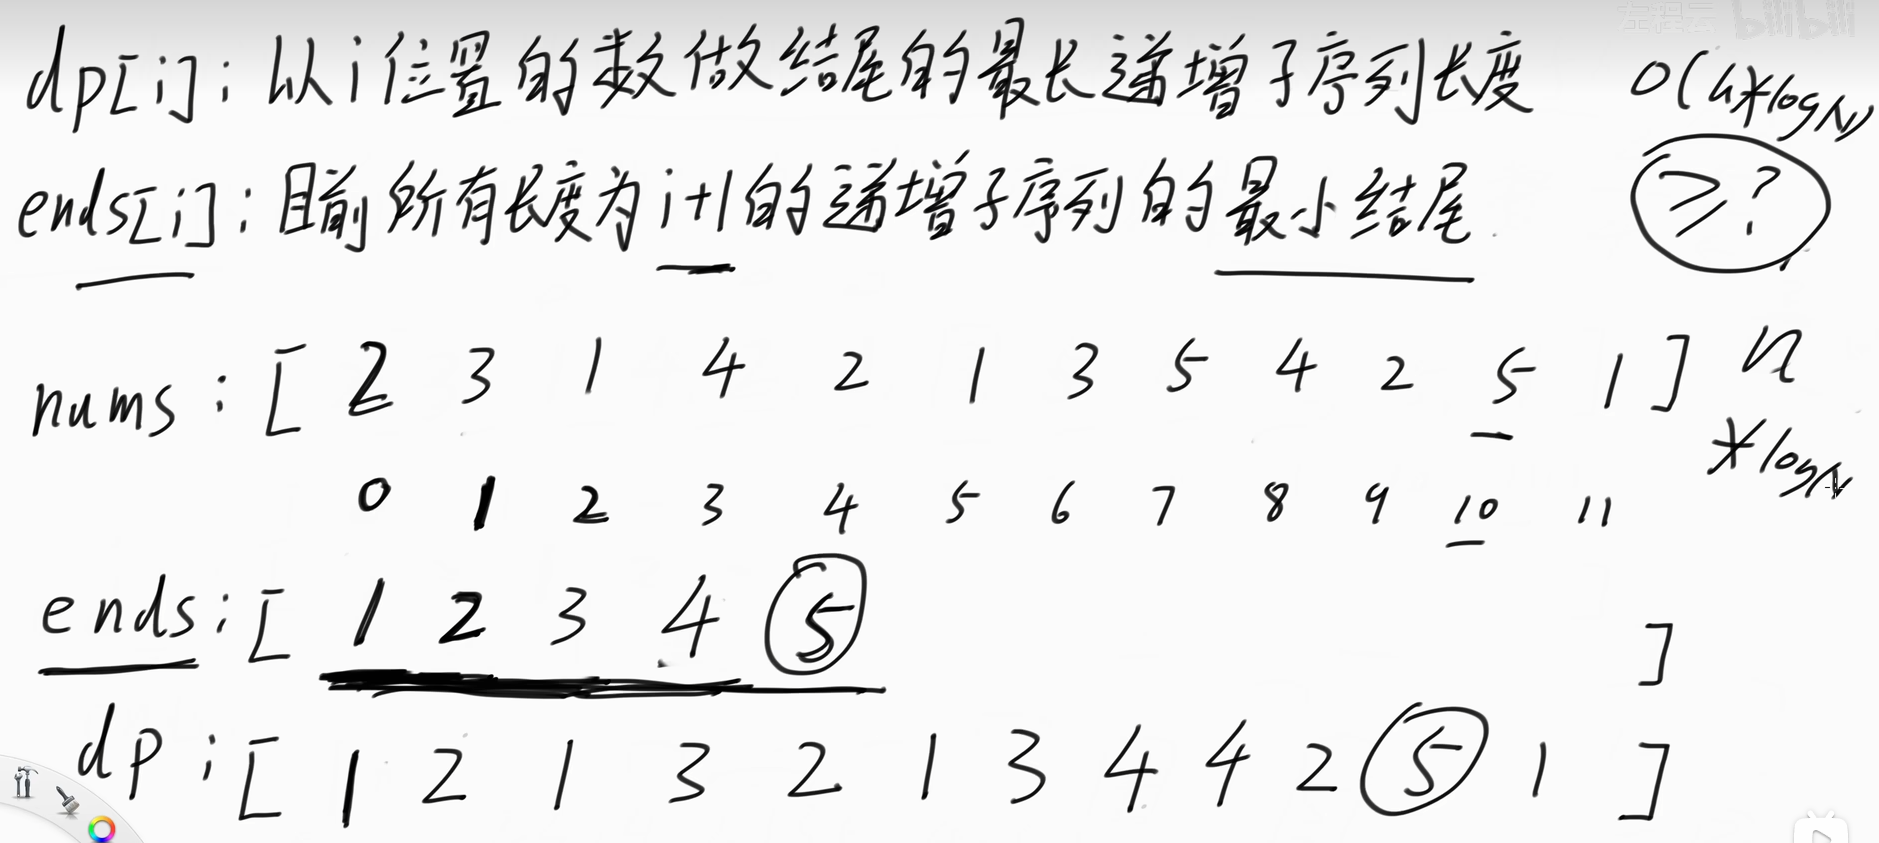 左程云 bilibili
dp[i]: 以i位置的数做结尾的最长递增子序列长度 O(n*logN)
ends[i]: 目前所有长度为i+1的递增子序列的最小结尾 ≥?
nums: [ 2 3 1 4 2 1 3 5 4 2 5 1 ] n
*logN
0 1 2 3 4 5 6 7 8 9 10 11
ends: [ 1 2 3 4 5 ]
dp: [ 1 2 1 3 2 1 3 4 4 2 5 1 ]